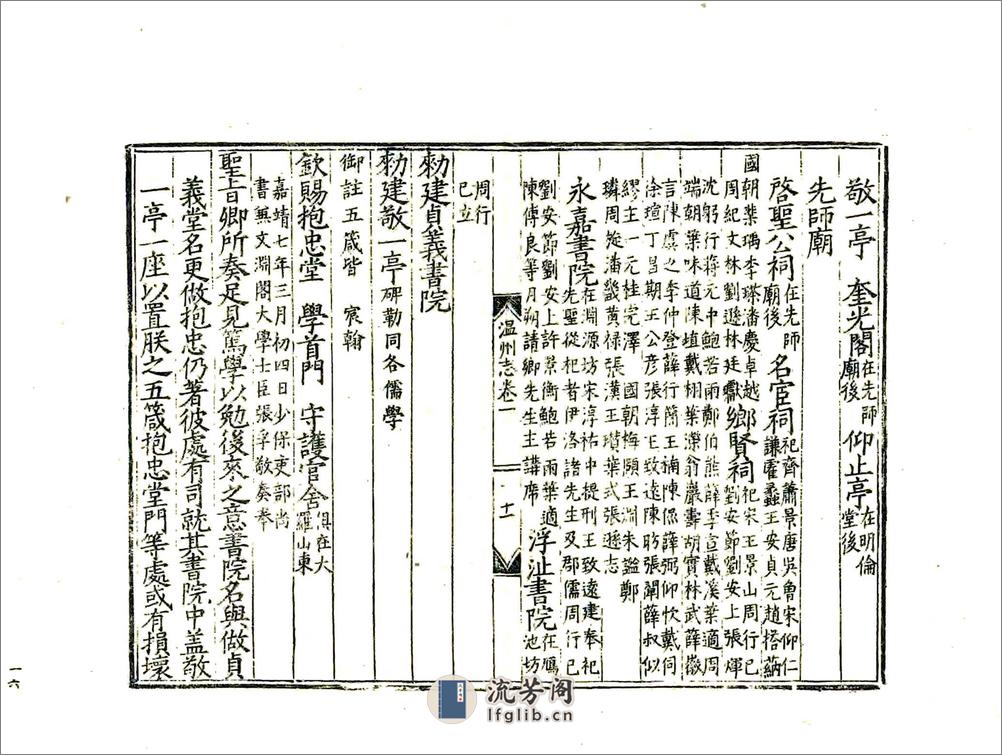 敬一亭　奎光閣在先師廟後　仰止亭在明倫堂後
先師廟
啓聖公祠在先師廟後　名宦祠祀齊蕭景唐吳魯宋仰仁謙霍蠡王安貞元趙搭蒳
國朝葉瑀李瑹潘慶卓越周紀文林劉遜林廷㺞鄉賢祠祀宋王景山周行已劉安節劉安上張煇
沈躬行蔣元中鮑若雨鄭伯熊薛季宣戴溪葉適周端朝葉味道陳埴戴栩葉瀠翁巖壽胡賓林武薛嶷
言陳虞之李仲登薛行簡王楠陳傒薛弼仰忺戴侗徐瑄丁昌期王公彥張淳王致遠陳昉張闡薛叔似
繆主一元桂完澤　國朝梅頤王淵朱諡鄭璘周旋潘畿黃祿張漢王瓚葉式張遜志
永嘉書院在淵源坊宋淳祐中提刑王致遠建奉祀先聖從祀者伊洛諸先生及郡儒周行已
劉安節劉安上許景衡鮑若雨葉適陳傅良等月朔請鄉先生主講席　浮沚書院在鴈池坊
温州志卷一　十一
周行已立
勑建貞義書院
勑建敬一亭碑勒同各儒學
御註五箴皆　宸翰
欽賜抱忠堂　學首門　守護官舍俱在大羅山東
嘉靖七年三月初四日少保吏部尚書兼文淵閣大學士臣張孚敬奏奉
聖旨卿所奏足見篤學以勉後來之意書院名與做貞
義堂名更做抱忠仍著彼處有司就其書院中盖敬
一亭一座以置朕之五箴抱忠堂門等處或有損壞
一六
流芳阁
lfglib.cn